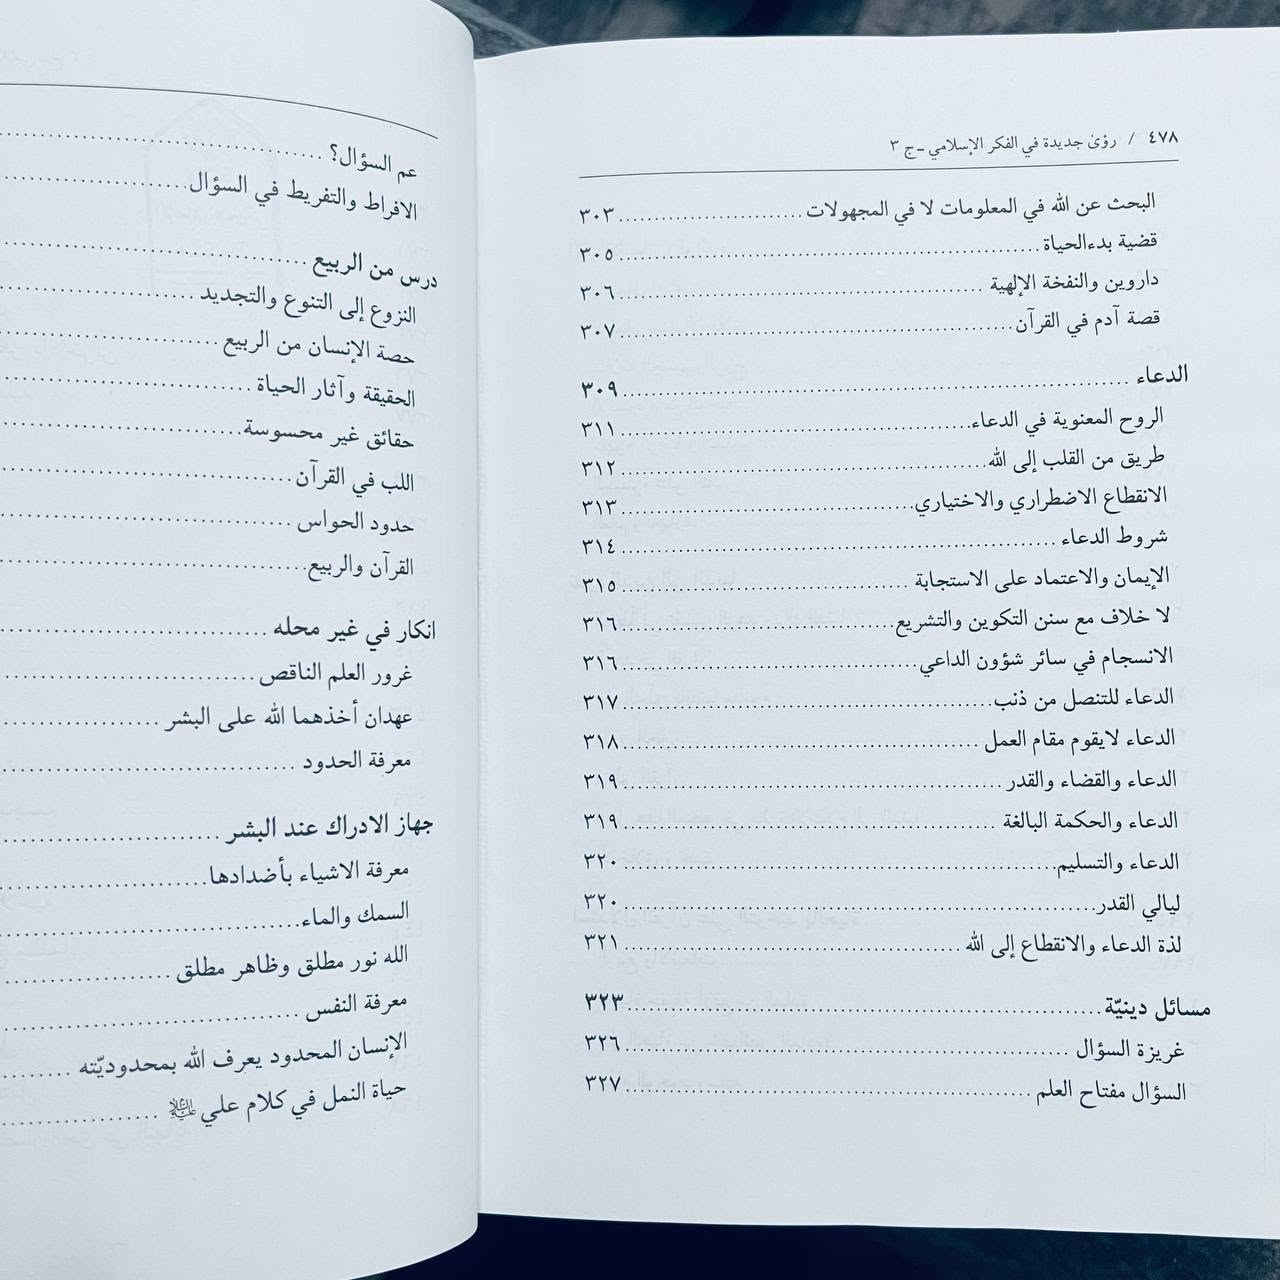 ٤٧٨ / رؤىٰ جديدة في الفكر الإسلامي ـ ج ٣
البحث عن الله في المعلومات لا في المجهولات ................ ٣٠٣
قضية بدءالحياة ................ ٣٠٥
داروين والنفخة الإلهية ................ ٣٠٦
قصة آدم في القرآن ................ ٣٠٧
الدعاء ................ ٣٠٩
الروح المعنوية في الدعاء ................ ٣١١
طريق من القلب إلى الله ................ ٣١٢
الانقطاع الاضطراري والاختياري ................ ٣١٣
شروط الدعاء ................ ٣١٤
الإيمان والاعتماد على الاستجابة ................ ٣١٥
لا خلاف مع سنن التكوين والتشريع ................ ٣١٦
الانسجام في سائر شؤون الداعي ................ ٣١٦
الدعاء للتنصل من ذنب ................ ٣١٧
الدعاء لايقوم مقام العمل ................ ٣١٨
الدعاء والقضاء والقدر ................ ٣١٩
الدعاء والحكمة البالغة ................ ٣١٩
الدعاء والتسليم ................ ٣٢٠
ليالي القدر ................ ٣٢٠
لذة الدعاء والانقطاع إلى الله ................ ٣٢١
مسائل دينيّة ................ ٣٢٣
غريزة السؤال ................ ٣٢٦
السؤال مفتاح العلم ................ ٣٢٧
عم السؤال؟ ................
الافراط والتفريط في السؤال ................
درس من الربيع ................
النزوع إلى التنوع والتجديد ................
حصة الإنسان من الربيع ................
الحقيقة وآثار الحياة ................
حقائق غير محسوسة ................
اللب في القرآن ................
حدود الحواس ................
القرآن والربيع ................
انكار في غير محله ................
غرور العلم الناقص ................
عهدان أخذهما الله على البشر ................
معرفة الحدود ................
جهاز الادراك عند البشر ................
معرفة الاشياء بأضدادها ................
السمك والماء ................
الله نور مطلق وظاهر مطلق ................
معرفة النفس ................
الإنسان المحدود يعرف الله بمحدوديّته ................
حياة النمل في كلام علي ................